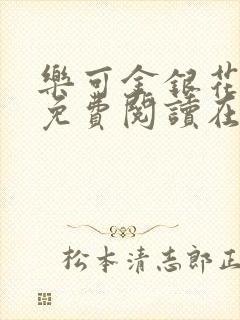 樂可金銀花
免費閱讀在
松本清志郎正